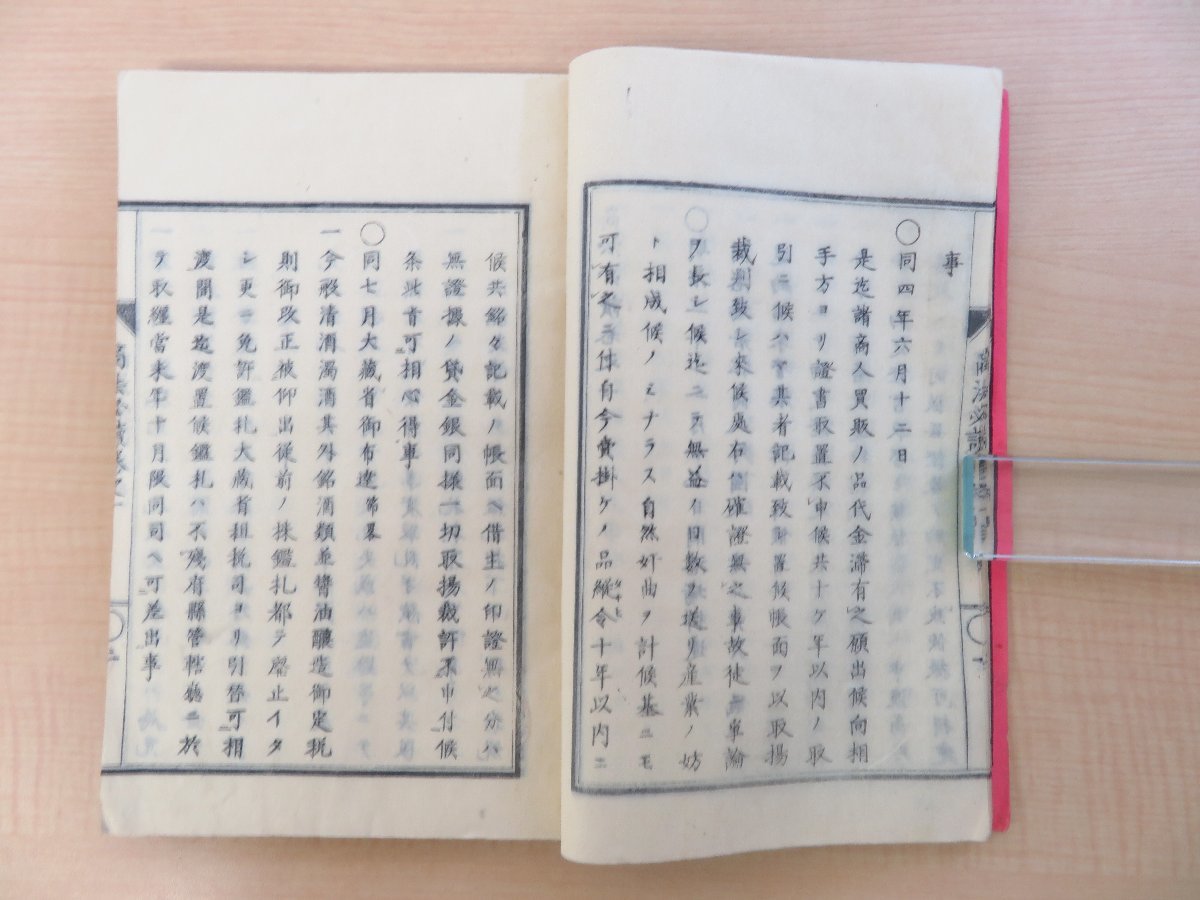 事
〇同四年六月十二日
是迄諸商人買販ノ品代金滞有之願出候向相
手方ヨリ證書取置不申候共十ケ年以内ノ取
引ニ候ハヽ其者記載致シ置候帳面ヲ以取揚
裁判致シ來候處右ハ確證無之事故徒ニ事論
ヲ長シ候迄ニテ無益ノ日數ヲ送リ産業ノ妨
ト相成候ノミナラス自然奸曲ヲ計候基ニモ
可有之ニ付自今賣掛ケノ品縦令十年以内ニ
候共銘々記載ノ帳面ヘ借主ノ印證無之分ハ
無證據ノ貸金銀同様一切取揚裁許不申付候
条此旨可相心得事
〇同七月大藏省御布達 節畧
一今般清酒濁酒其外銘酒類並醬油醸造御定税
則御改正被仰出從前ノ株鑑札都テ廢止イタ
シ更ニ免許鑑札大藏省租税司ヨリ引替可相
渡間是迄渡置候鑑札ハ不殘府縣管轄廳ニ於
テ取纏當來年十月限同司ヘ可差出事
商法必讀